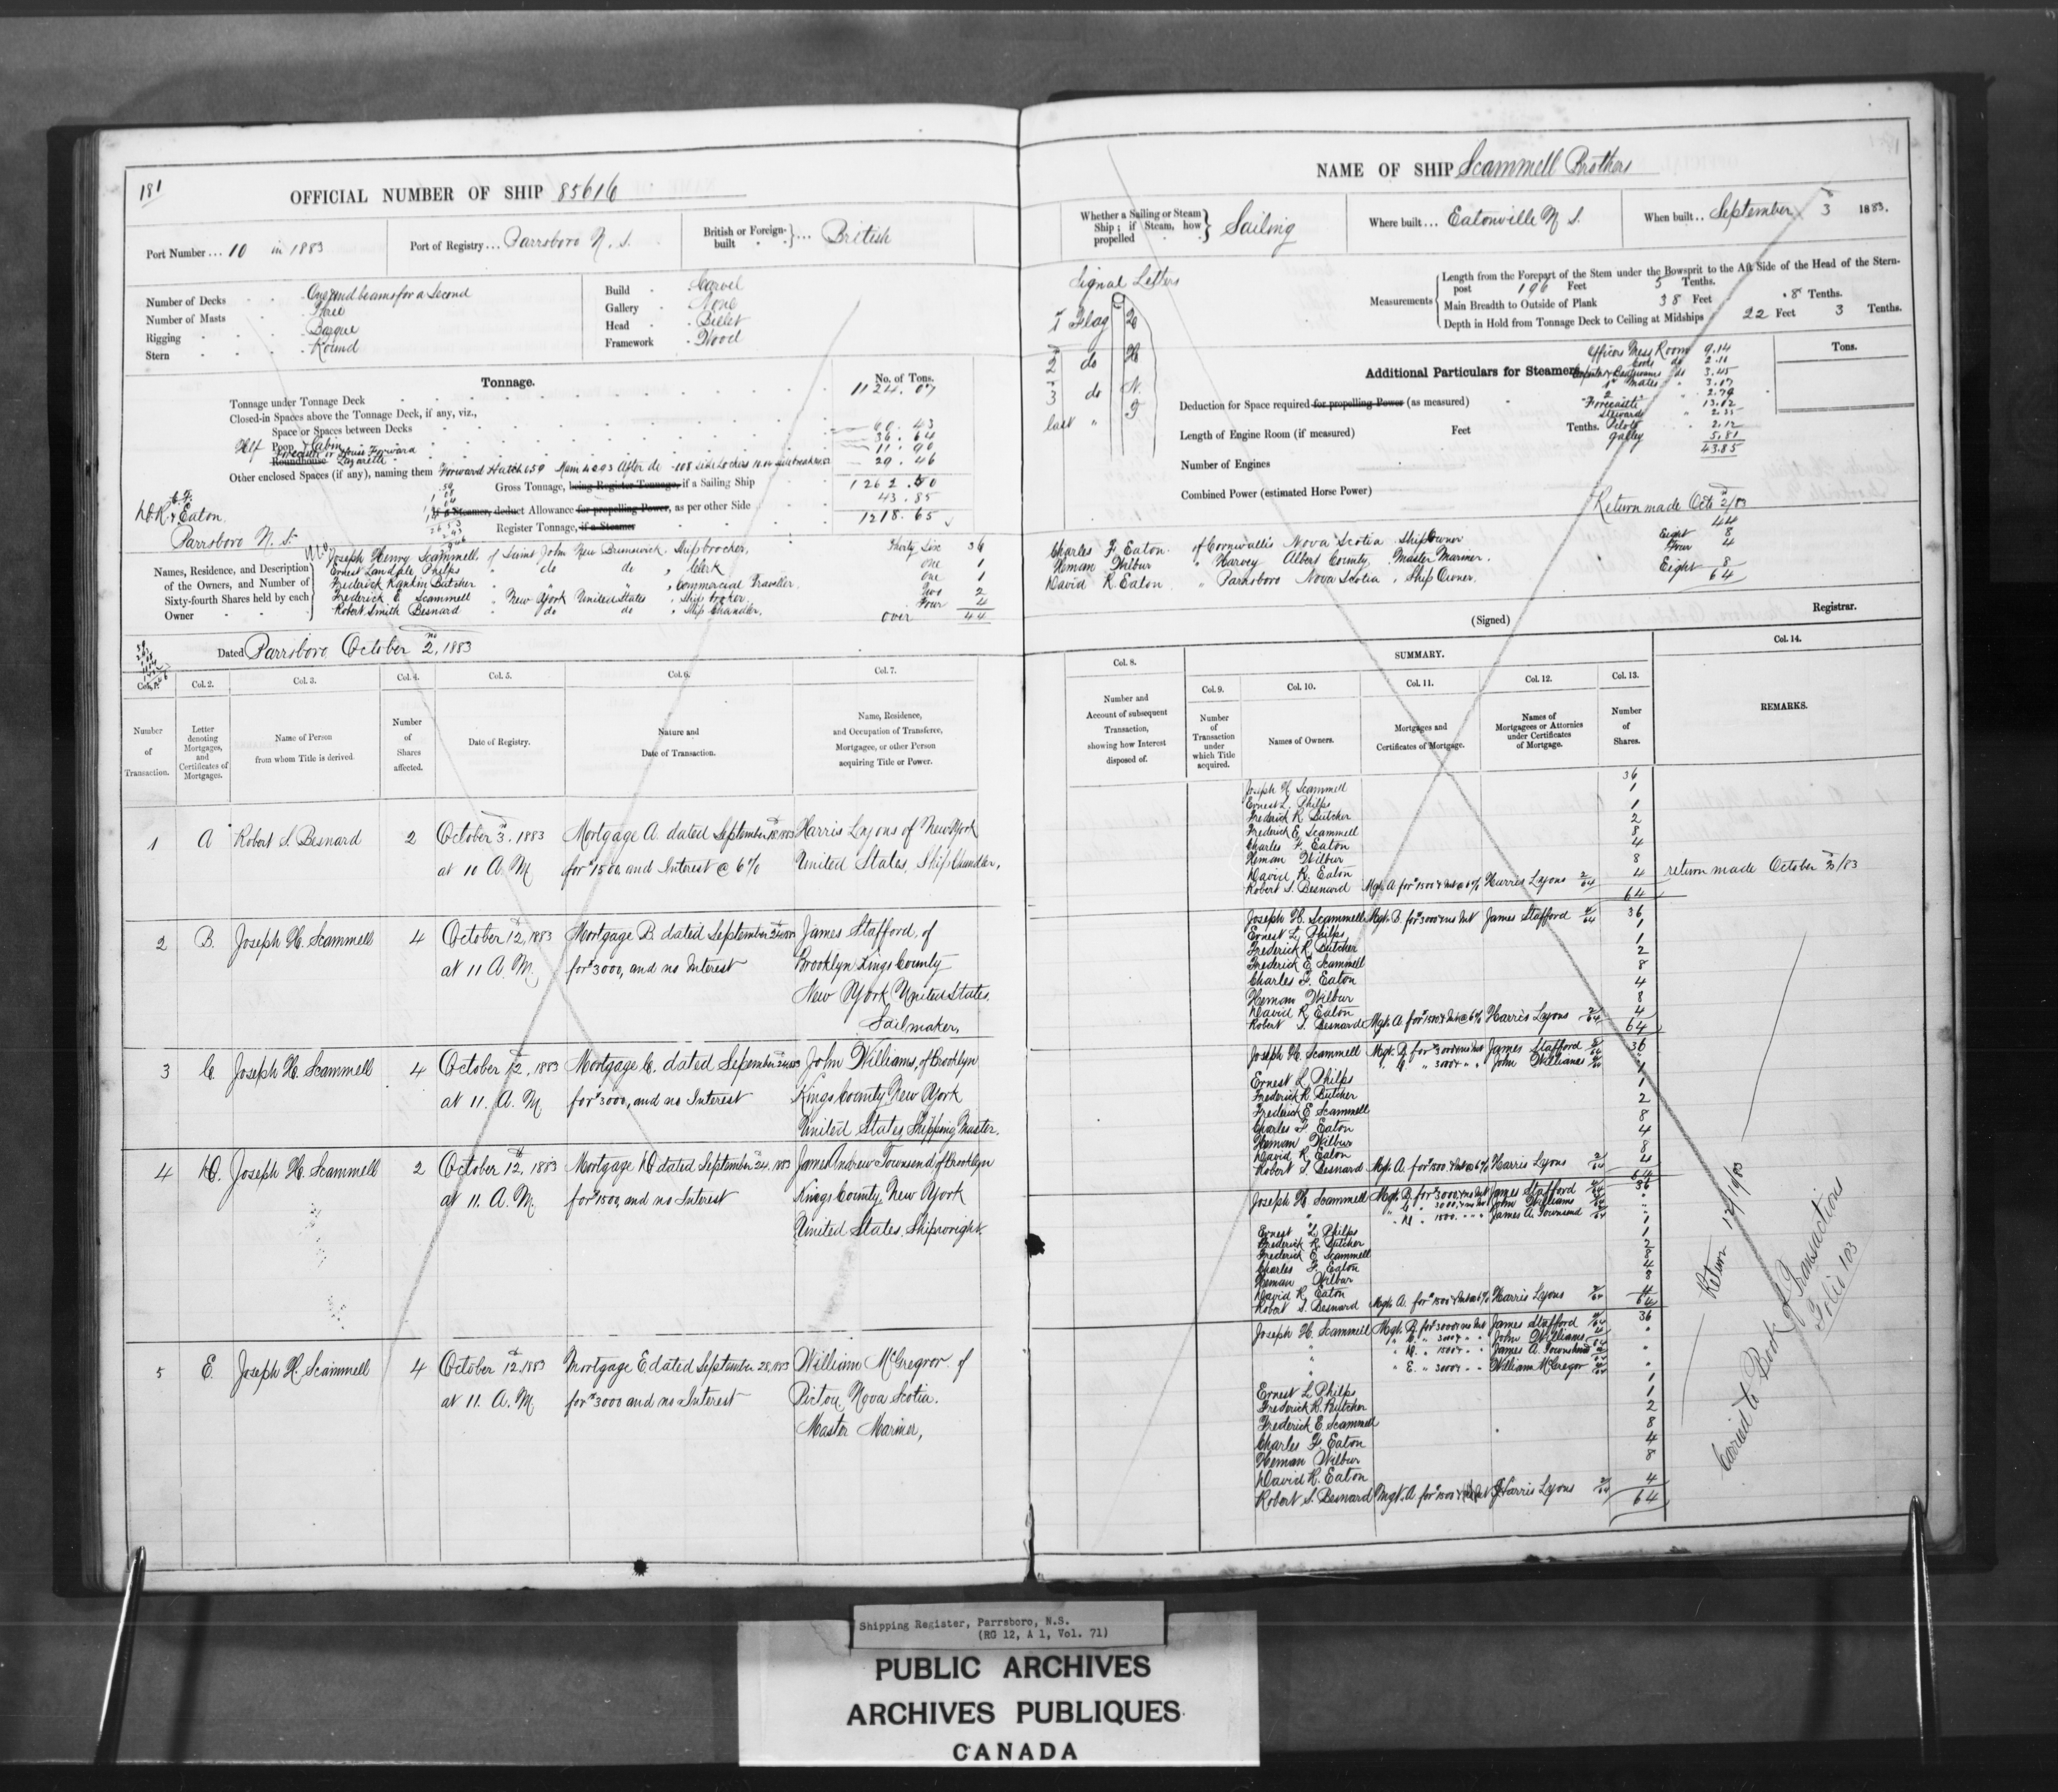 181
OFFICIAL NUMBER OF SHIP 85616
Port Number ... 10 in 1883
Port of Registry ... Parrsboro N. S.
British or Foreign-built ... British
Number of Decks One and beams for a Second
Number of Masts Three
Rigging Barque
Stern Round
Build Carvel
Gallery None
Head Billet
Framework Wood
Tonnage.
No. of Tons.
Tonnage under Tonnage Deck 1124.07
Closed-in Spaces above the Tonnage Deck, if any, viz.,
Space or Spaces between Decks
Half Poop & Cabin 60.43
Forecastle or House Forward 36.64
Roundhouse Lazarette 11.90
Other enclosed Spaces (if any), naming them Forward Hatch 6.59 Main 4.93 After do 29.46
Gross Tonnage, being Register Tonnage, if a Sailing Ship 1262.50
If a Steamer, deduct Allowance for propelling Power, as per other Side 43.85
Register Tonnage, if a Steamer 1218.65
C. F.
D. R. & Eaton
Parrsboro N. S.
Names, Residence, and Description of the Owners, and Number of Sixty-fourth Shares held by each Owner
Joseph Henry Scammell, of Saint John New Brunswick, Shipbrocker, Thirty Six 36
Ernest Landale Philps " do do " Clerk One 1
Frederick Rankin Butcher " " " " Commercial Traveller One 1
Frederick E. Scammell " New York United States " Ship brocker Two 2
Robert Smith Besnard " do do " Ship Chandler, Four 4
over 44
Dated Parrsboro October 2nd, 1883
Col. 1. Col. 2. Col. 3. Col. 4. Col. 5. Col. 6. Col. 7.
Number of Transaction.
Letter denoting Mortgages, and Certificates of Mortgages.
Name of Person from whom Title is derived
Number of Shares affected.
Date of Registry.
Nature and Date of Transaction.
Name, Residence, and Occupation of Transferee, Mortgagee, or other Person acquiring Title or Power.
1 A Robert S. Besnard 2 October 3rd, 1883 Mortgage A. dated September 18, 1883 Harris Lyons of New York
at 10 A. M. for $1500, and Interest @ 6% United States, Ship Chandler,
2 B. Joseph H. Scammell 4 October 12th, 1883 Mortgage B. dated September 24 1883 James Stafford, of
at 11 A. M. for $3000, and no Interest Brooklyn Kings County
New York United States.
Sailmaker,
3 C. Joseph H. Scammell 4 October 12, 1883 Mortgage C. dated Sepember 24 1883 John Williams, of Brooklyn
at 11. A. M. for $3000, and no Interest Kings County, New York
United States, Shipping Master.
4 D. Joseph H. Scammell 2 October 12th, 1883 Mortgage D dated September 24, 1883 James Andrew Townsend of Brooklyn
at 11. A. M. for $1500, and no Interest Kings County, New York
United States. Shipwright.
5 E. Joseph H. Scammell 4 October 12th, 1883 Mortgage E. dated September 28, 1883 William McGregror of
at 11. A. M. for $3000 and no Interest Pictou, Nova Scotia.
Master Mariner,
NAME OF SHIP Scammell Brothers
Whether a Sailing or Steam Ship; if Steam, how propelled Sailing
Where built ... Eatonville N. S.
When built .. September 3 1883.
Signal Letters
1 Flag
2 do H
3 do N
last " T
Measurements
Length from the Forepart of the Stem under the Bowsprit to the Aft Side of the Head of the Stern-
post 196 Feet 5 Tenths.
Main Breadth to Outside of Plank 38 Feet .8 Tenths.
Depth in Hold from Tonnage Deck to Ceiling at Midships 22 Feet 3 Tenths.
Additional Particulars for Steamers
Tons.
Officers Mess Room 9.14
Cooks do 2.11
do 3.45
1st Mates " 3.07
2 " 2.79
Forecastle 13.12
Stewards " 2.35
Pilots " 2.12
Galley 5.81
43.85
Deduction for Space required for propelling Power (as measured)
Length of Engine Room (if measured) Feet Tenths.
Number of Engines
Combined Power (estimated Horse Power)
Return made Oct 2/83
44
Charles F Eaton. of Cornwallis Nova Scotia Shipowner Eight 8
Heman Wilbur " Harvey Albert County, Master Mariner. Four 4
David R. Eaton " Parrsboro Nova Scotia, Ship Owner. Eight 8
64
(Signed) Registrar.
SUMMARY.
Col. 8. Col. 9. Col. 10. Col. 11. Col. 12. Col. 13. Col. 14.
Number and Account of subsequent Transaction, showing how Interest disposed of.
Number of Transaction under which Title acquired.
Names of Owners.
Mortgages and Certificates of Mortgage.
Names of Mortgagees or Attornies under Certificates of Mortgage.
Number of Shares.
REMARKS.
Joseph H. Scammell 36
Ernest L. Philps 1
Frederick R. Butcher 1
Frederick E. Scammell 2
Charles F. Eaton 8
Heman Wilbur 4
David R. Eaton 8
Robert S. Besnard Mgt. A for $1500 & Int @ 6% Harris Lyons 2/64 4
64
return made October 3/83
Joseph H. Scammell Mgt. B. for $3000 & no Int James Stafford 4/64 36
Ernest L. Philps 1
Frederick R. Butcher 1
Frederick E. Scammell 2
Charles F. Eaton 8
Heman Wilbur 4
David R. Eaton 8
Robert S. Besnard Mgt. A for $1500 & Int @ 6% Harris Lyons 2/64 4
64
Joseph H. Scammell Mgt. B for $3000 & no Int James Stafford 36
" C " 3000 " " John Williams
Ernest L Philps 1
Frederick R. Butcher 1
Frederick E Scammell 2
Charles F. Eaton 8
Heman Wilbur 4
David R. Eaton 8
Robert S. Besnard Mgt. A. for $1500 & Int @ 6% Harris Lyons 2/64 4
64
Joseph H Scammell Mgt. B for $3000 & no Int James Stafford 4/64 36
" C " 3000 & no Int John Williams
" D " 1500 " " James A. Townsend
Ernest L Philps 1
Frederick R. Butcher 1
Frederick E Scammell 2
Charles F. Eaton 8
Heman Wilbur 4
David R. Eaton 8
Robert S. Besnard Mgt. A. for $1500 & Int @ 6% Harris Lyons 2/64 4
64
Joseph H. Scammell Mgt. B for $3000 & no Int James Stafford 36
" C. " 3000 " " John Williams
" D. " 1500 " " James A. Townsend
" E. " 3000 " " William McGregor
Ernest L. Philps 1
Frederick R. Butcher 1
Frederick E. Scammell 2
Charles F. Eaton 8
Heman Wilbur 4
David R. Eaton 8
Robert S. Besnard Mgt. A for $1500 Harris Lyons 2/64 4
64
Return 12/10/83
Carried to Book of Transactions
Folio 103
Shipping Register, Parrsboro, N.S.
(RG 12, A 1, Vol. 71)
PUBLIC ARCHIVES
ARCHIVES PUBLIQUES
CANADA